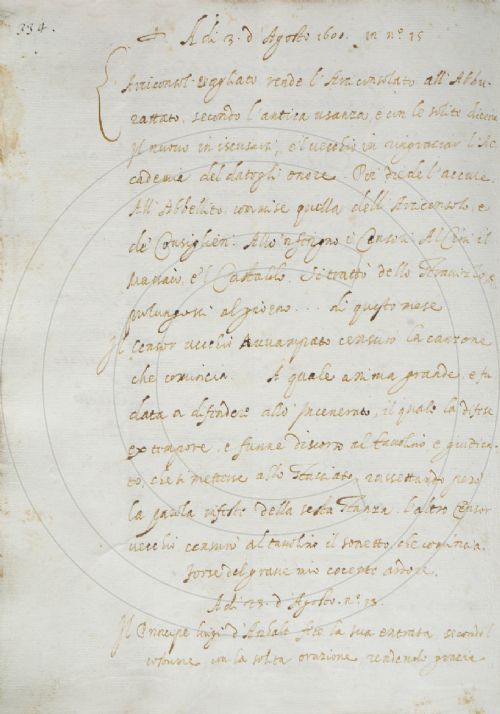 334.
A di 3. d'Agosto 1600. in n.o 15
Arciconsol vegliato rende l'Arciconsolato all'Abbu-
rattato, secondo l'antica usanza, e con le solite dicerie
Il nuovo in iscusarsi, e'l vecchio in ringraziar l'Ac
cademia del datogli onore. Poi die de l'accuse.
All'Abbellito, commise quella dell'Arciconsolo, e
de' Consiglieri. Allo 'nferigno i Censori. Al il
Massaio, e'l Castaldo. Si trattò dello Stravizzo, e
prolungossi al giorno ... di questo mese
Il Censor vecchio Avvampato censurò la canzone
che comincia. A quale anima grande, e fu
data a difendere allo 'ncenerato, il quale la difese
extempore, e funne discorso al tavolino, e giudica-
to, che si mettesse allo Stacciato, rassettando però
la parola della sesta stanza. l'altro Censor
vecchio censurò al tavolino il sonetto, che comincia.
Forse del grave mio cocente ardore.
A di 23. d'Agosto. n.o 13.
Il Principe Luigi d'Anhalt fece la sua entrata, secondo 'l
costume, con la solita orazione rendendo grazie